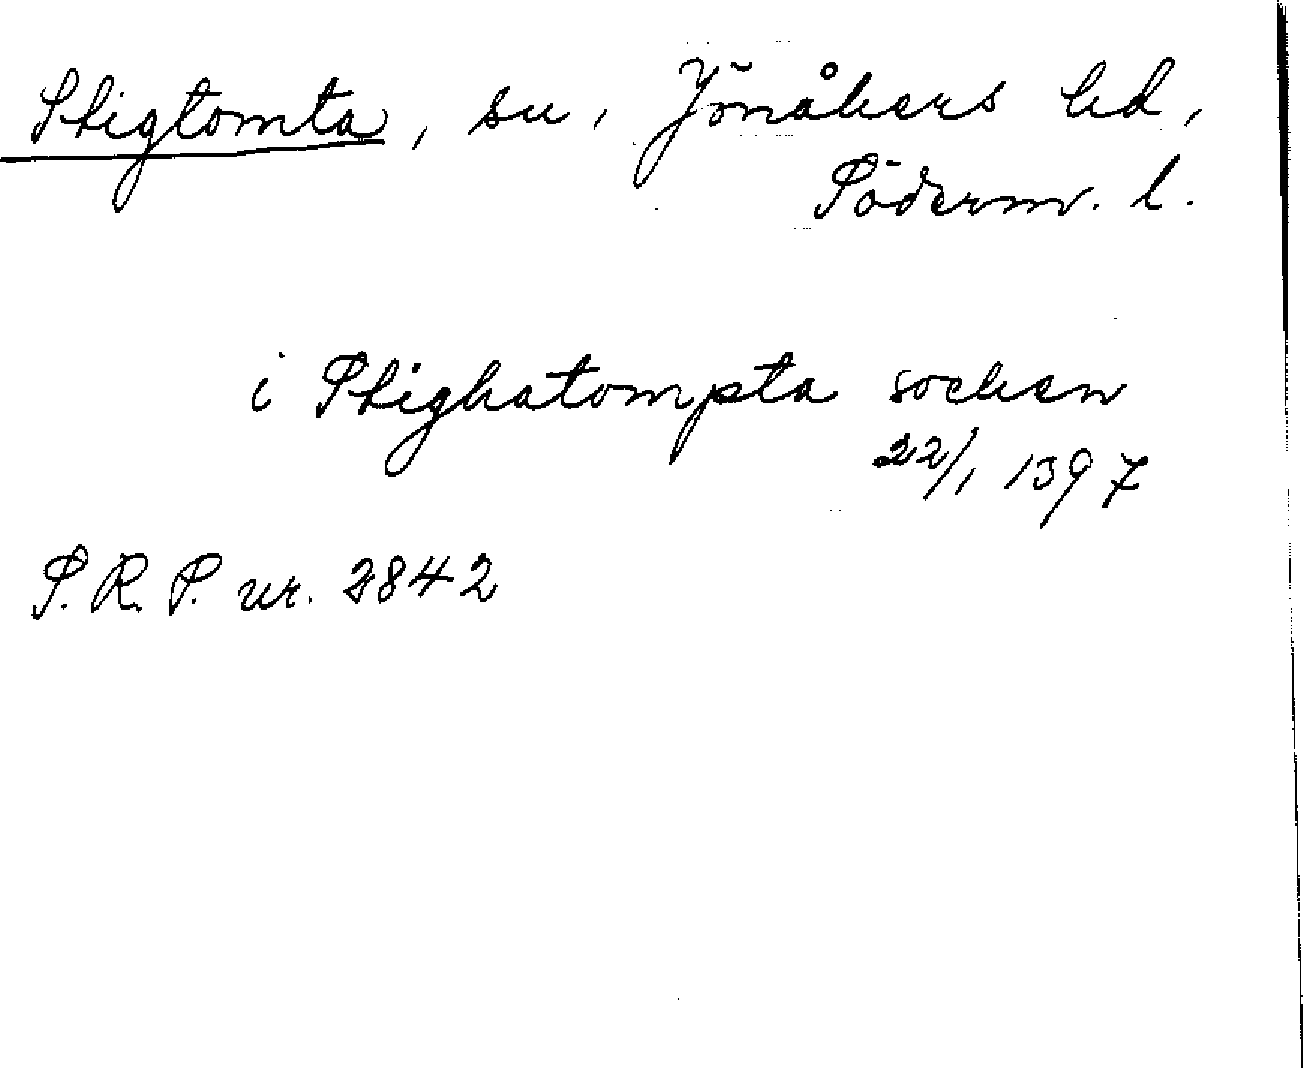 Stigtomta, sn, Jönåkers hd,
Söderm. l.
i Stighatompta soeken
22/1 1397
S.R.P. nr. 2842